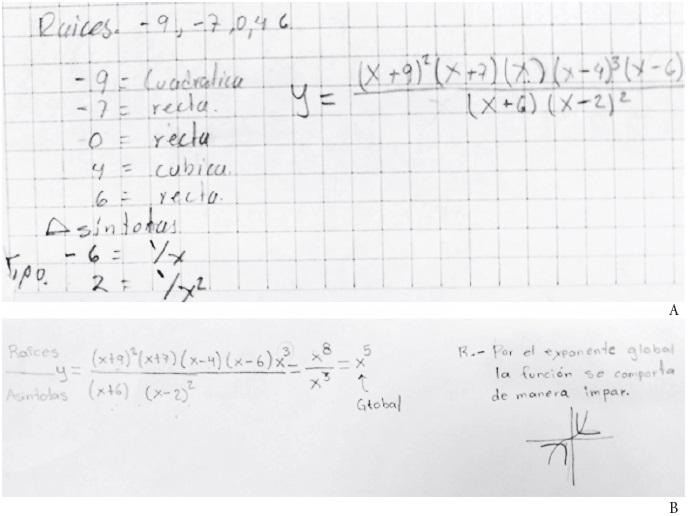 Raices. -9, -7, 0, 4 6
-9 = Cuadratica
-7 = recta.
0 = recta
4 = cubica.
6 = recta.
y = (x+9)²(x+7)(x)(x-4)³(x-6) / (x+6)(x-2)²
Asintotas
Tipo.
-6 = 1/x
2 = 1/x²
A
Raíces
Asintotas
y = (x+9)²(x+7)(x-4)(x-6)x³ / (x+6)(x-2)² = x⁸ / x³ = x⁵
↑
Global
R.- Por el exponente global
la función se comporta
de manera impar.
B